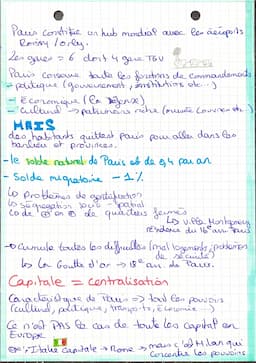 Paris constitue un hub mondial avec les aéroports
Roissy / Orly.
Les gares = 6 dont 4 gare TGV
Paris conserve toute les fonctions de commandements
- politique (gouvernement, institutions etc...)
- Économique (la défense)
- Culturel → patrimoine riche (musée Louvre etc...)
MAIS
des habitants quittent Paris pour aller dans les
banlieues et provinces.
- le solde naturel de Paris est de 0,4 par an
- Solde migratoire - 1%
↳ problèmes de gentrification
↳ ségrégation socio-spatial
de quartiers fermés
↳ villa Montmorency
résidence du 16e arr Paris
→ Cumule toutes les difficultés (mal logements, problèmes
de sécurité)
↳ La Goutte d'or → 18e arr. de Paris.
Capitale = centralisation
Caractéristique de Paris => tout les pouvoirs
(culturel, politique, transports, économie...)
Ce n'est PAS le cas de toute les capital en
Europe
Ex: Italie capitale → Rome → mais c'est Milan qui
concentre les pouvoirs